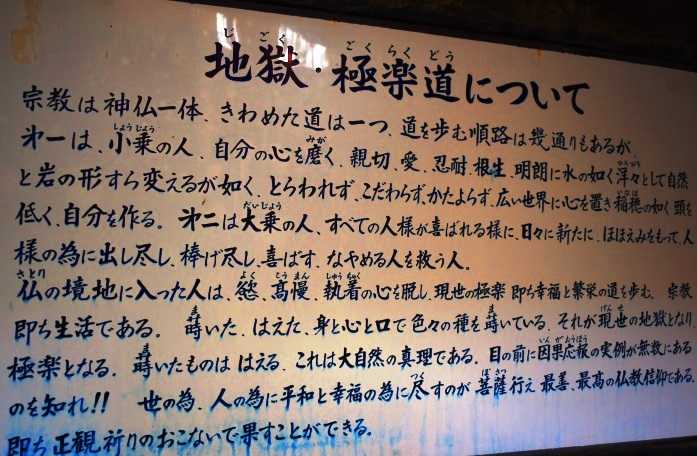 地獄・極楽道について
宗教は神仏一体、きわめた道は一つ、道を歩む順路は幾通りもあるが、
㐧一は、小乗の人、自分の心を磨く、親切、愛、忍耐、根生、明朗に水の如く洋々として自然
と岩の形すら変えるが如く、とらわれず、こだわらず、かたよらず、広い世界に心を置き稲穂の如く頭を
低く、自分を作る。㐧二は大乗の人、すべての人様が喜ばれる様に、日々に新たに、ほほえみをもって、人
様の為に出し尽し、棒げ尽し、喜ばす、なやめる人を救う人。
仏の境地に入った人は、慾、高慢、執着の心を脱し、現世の極楽即ち幸福と繁栄の道を歩む、宗教
即ち生活である。蒔いた、はえた、身と心と口で色々の種を蒔いている。それが現世の地獄となり
極楽となる。蒔いたものははえる、これは大自然の真理である。目の前に因果応報の実例が無数にある
のを知れ!! 世の為、人の為に平和と幸福の為に尽すのが菩薩行え最善、最高の仏教信仰である。
即ち正観祈りのおこないで果すことができる。